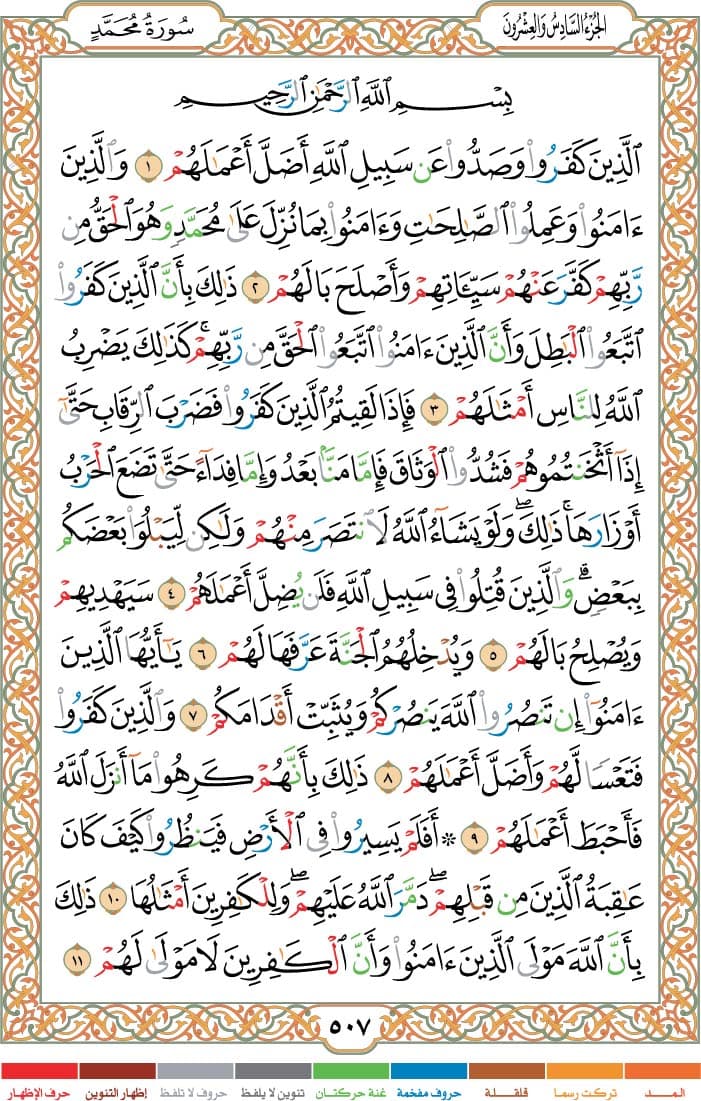 الجزء السادس والعشرون
سورة محمد
بِسْمِ اللَّهِ الرَّحْمَٰنِ الرَّحِيمِ
الَّذِينَ كَفَرُوا وَصَدُّوا عَن سَبِيلِ اللَّهِ أَضَلَّ أَعْمَٰلَهُمْ ١ وَالَّذِينَ
ءَامَنُوا وَعَمِلُوا الصَّٰلِحَٰتِ وَءَامَنُوا بِمَا نُزِّلَ عَلَىٰ مُحَمَّدٍ وَهُوَ الْحَقُّ مِن
رَّبِّهِمْ كَفَّرَ عَنْهُمْ سَيِّـَٔاتِهِمْ وَأَصْلَحَ بَالَهُمْ ٢ ذَٰلِكَ بِأَنَّ الَّذِينَ كَفَرُوا
اتَّبَعُوا الْبَٰطِلَ وَأَنَّ الَّذِينَ ءَامَنُوا اتَّبَعُوا الْحَقَّ مِن رَّبِّهِمْ ۚ كَذَٰلِكَ يَضْرِبُ
اللَّهُ لِلنَّاسِ أَمْثَٰلَهُمْ ٣ فَإِذَا لَقِيتُمُ الَّذِينَ كَفَرُوا فَضَرْبَ الرِّقَابِ حَتَّىٰٓ
إِذَآ أَثْخَنتُمُوهُمْ فَشُدُّوا الْوَثَاقَ فَإِمَّا مَنًّۢا بَعْدُ وَإِمَّا فِدَآءً حَتَّىٰ تَضَعَ الْحَرْبُ
أَوْزَارَهَا ۚ ذَٰلِكَ ۖ وَلَوْ يَشَآءُ اللَّهُ لَانتَصَرَ مِنْهُمْ وَلَٰكِن لِّيَبْلُوَا بَعْضَكُم
بِبَعْضٍ ۗ وَالَّذِينَ قُتِلُوا فِى سَبِيلِ اللَّهِ فَلَن يُضِلَّ أَعْمَٰلَهُمْ ٤ سَيَهْدِيهِمْ
وَيُصْلِحُ بَالَهُمْ ٥ وَيُدْخِلُهُمُ الْجَنَّةَ عَرَّفَهَا لَهُمْ ٦ يَٰٓأَيُّهَا الَّذِينَ
ءَامَنُوٓا إِن تَنصُرُوا اللَّهَ يَنصُرْكُمْ وَيُثَبِّتْ أَقْدَامَكُمْ ٧ وَالَّذِينَ كَفَرُوا
فَتَعْسًا لَّهُمْ وَأَضَلَّ أَعْمَٰلَهُمْ ٨ ذَٰلِكَ بِأَنَّهُمْ كَرِهُوا مَآ أَنزَلَ اللَّهُ
فَأَحْبَطَ أَعْمَٰلَهُمْ ٩ ۞ أَفَلَمْ يَسِيرُوا فِى الْأَرْضِ فَيَنظُرُوا كَيْفَ كَانَ
عَٰقِبَةُ الَّذِينَ مِن قَبْلِهِمْ ۖ دَمَّرَ اللَّهُ عَلَيْهِمْ ۖ وَلِلْكَٰفِرِينَ أَمْثَٰلُهَا ١٠ ذَٰلِكَ
بِأَنَّ اللَّهَ مَوْلَى الَّذِينَ ءَامَنُوا وَأَنَّ الْكَٰفِرِينَ لَا مَوْلَىٰ لَهُمْ ١١
٥٠٧
المـــد تركت رسما قلقـلة حروف مفخمة غنة حركتان تنوين لا يلفظ حروف لا تلفظ إظهار التنوين حرف الإظهار